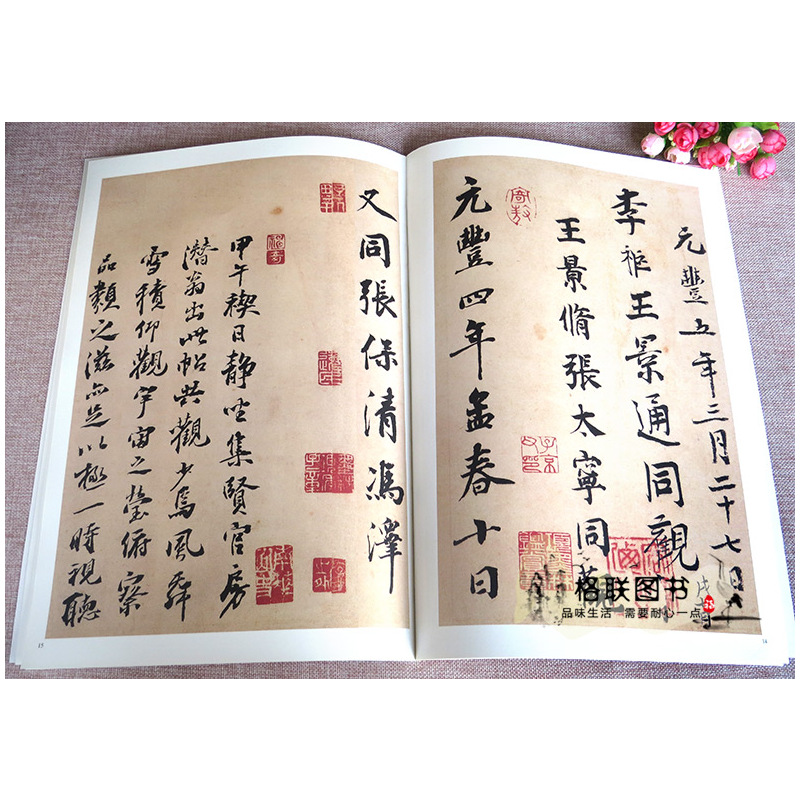 元豐五年三月二十七日
李 王景通同觀
王景脩張太寧同觀
元豐四年孟春十日
又同張保清馮澤
甲午禊日靜坐集賢官房
濳翁出此帖共觀少焉風舞
雪積仰觀宇宙之瑩俯察
品類之滋亦足以極一時視聽
格联图书
品味生活 需要耐心一点
15
14